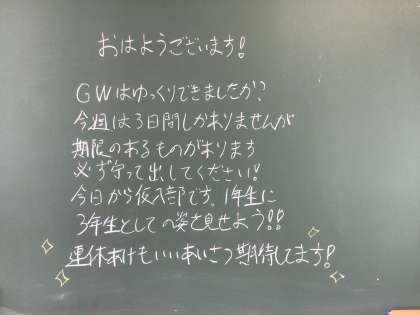 おはようございます!
GWはゆっくりできましたか?
今週は3日間しかありませんが
期限のあるものがあります
必ず守って出してください!
今日から仮入部です。1年生に
3年生としての姿を見せよう!!
連休あけもいいあいさつ期待してます!